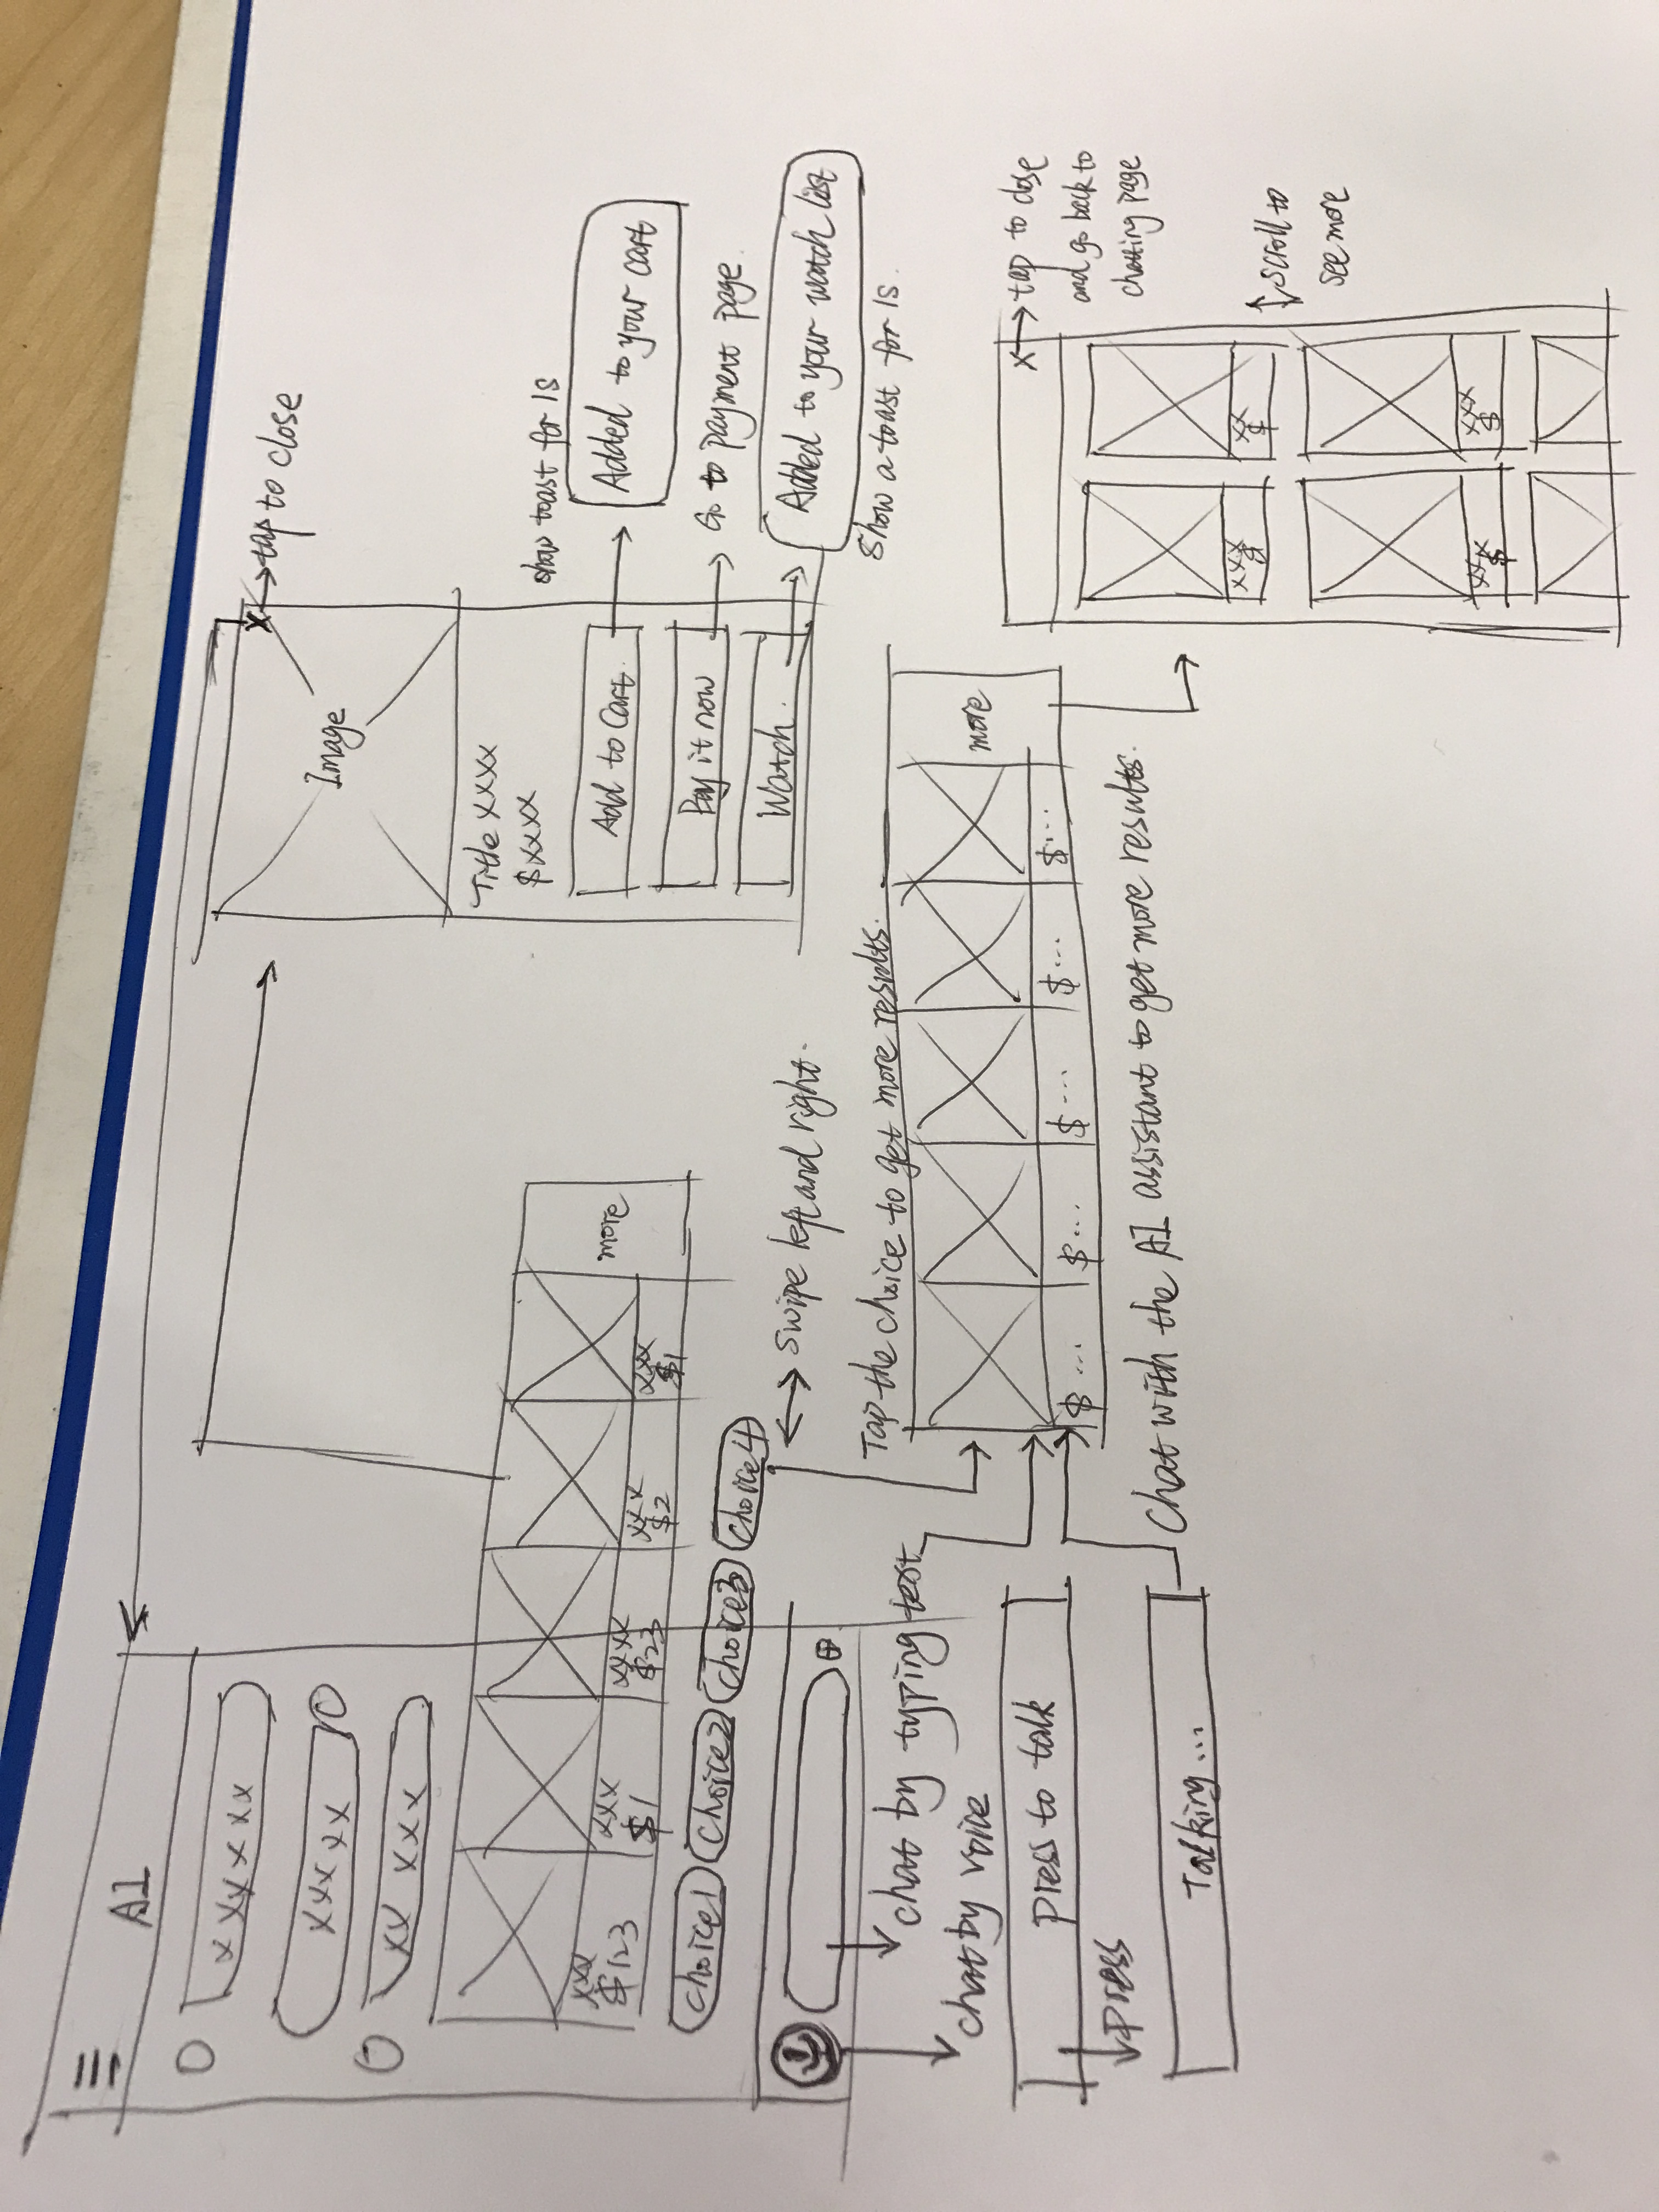 AI
x xyx xx
xxx xx
xx xxx
xxx
$123
xxx
$1
xxxx
$23
xxx
$2
xxx
$1
more
choice1
choice2
choice3
choice4
swipe left and right.
chat by typing text
chat by voice
Press to talk
Press
Talking...
Image
x
tap to close
Title xxxx
$xxxx
Add to Cart
Pay it now
Watch.
show toast for 1s
Added to your cart
Go to payment page.
Added to your watch list
Show a toast for 1s.
Tap the choice to get more results.
$...
$...
$...
$...
$...
more
Chat with the AI assistant to get more results.
x
tap to close
and go back to
chatting page
xxx
$
xx
$
xxx
$
xxx
$
scroll to
see more